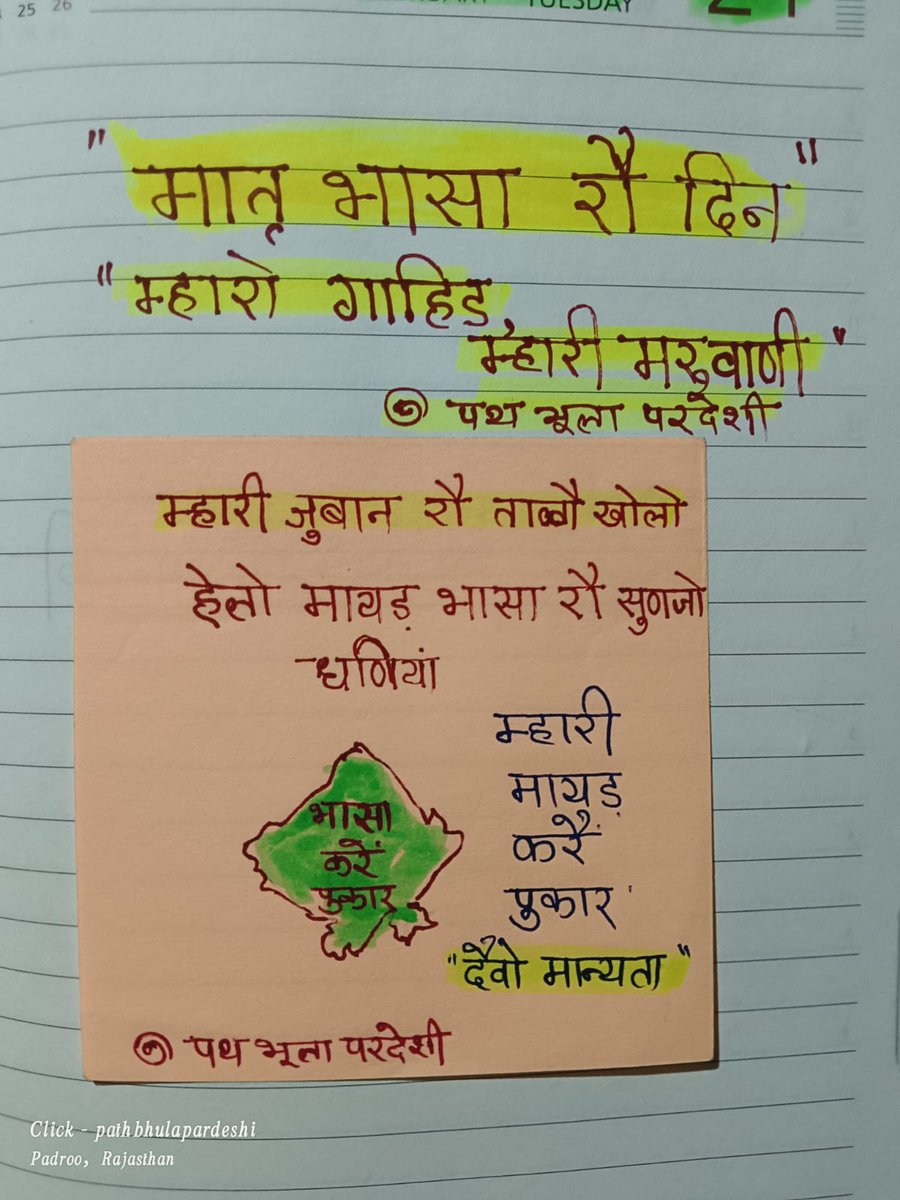 25 26
TUESDAY
21
"मातृ भासा रौ दिन"
"म्हारो गाहिड़
म्हारी मरुवाणी"
पथ भूला परदेशी
म्हारी जुबान रौ ताळौ खोलो
हेलो मायड़ भासा रौ सुणजो
धणियां
भासा
करें
पुकार
म्हारी
मायड़
करैं
पुकार
"दैवो मान्यता"
पथ भूला परदेशी
Click - pathbhulapardeshi
Padroo, Rajasthan